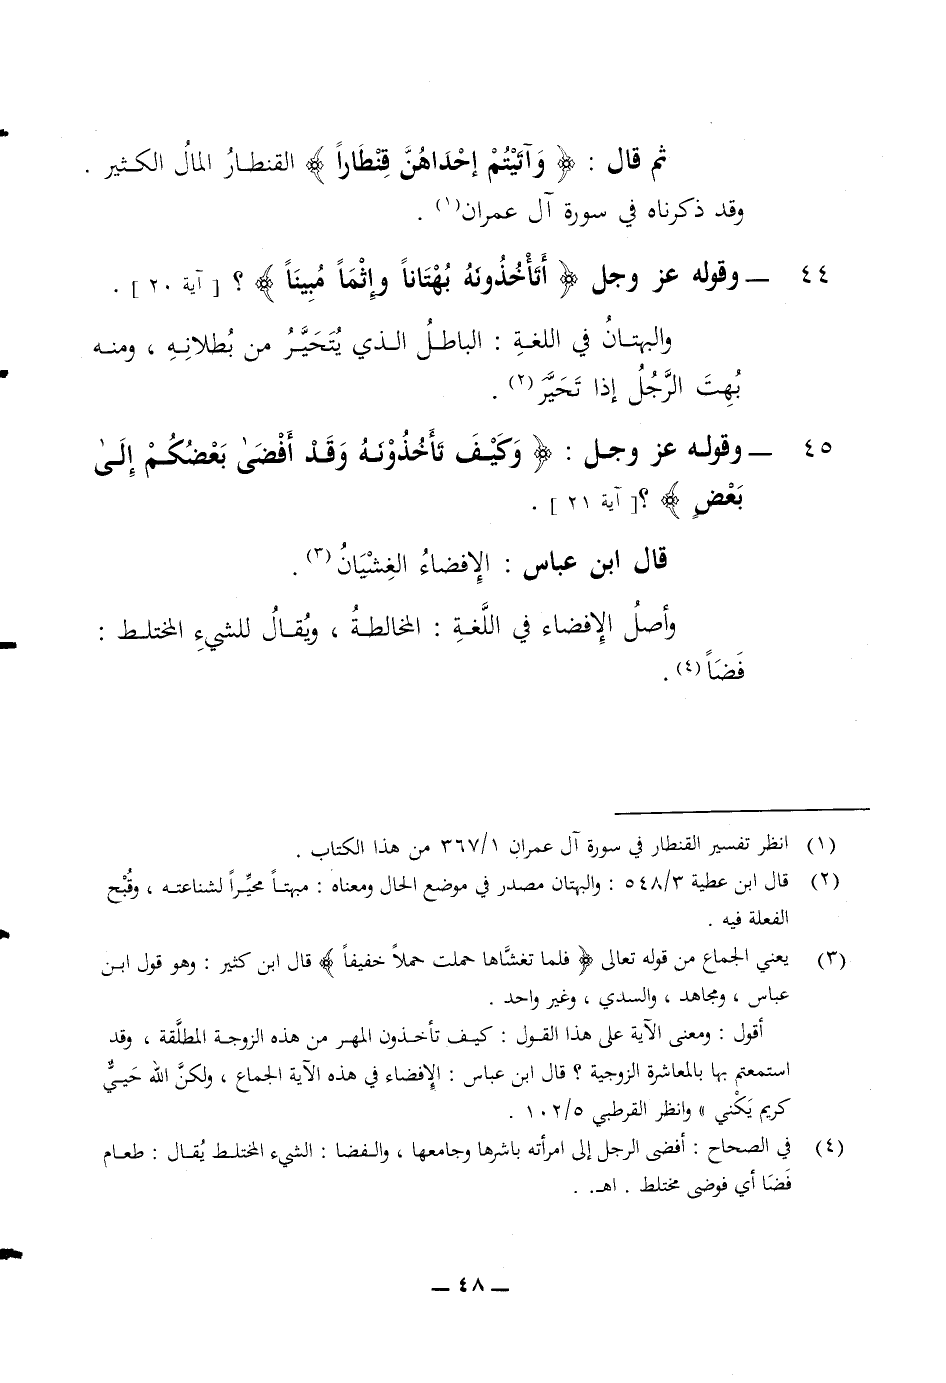 ثم قال : ﴿ وَآتَيْتُمْ إِحْدَاهُنَّ قِنْطَاراً ﴾ القنطـارُ المالُ الكـثير .
وقد ذكرناه في سورة آل عمران(١) .
٤٤ ــ وقوله عز وجل ﴿ أَتَأْخُذُونَهُ بُهْتَاناً وإِثْمَاً مُبِينَاً ﴾ ؟ [ آية ٢٠ ] .
والبهتـانُ في اللغـةِ : الباطلُ الـذي يُتَحَيَّـرُ من بُطلانِـهِ ، ومنـه
بُهِتَ الرَّجُلُ إذا تَحَيَّر(٢) .
٤٥ ــ وقولـه عز وجـل : ﴿ وَكَيْـفَ تَأْخُذُوْنَـهُ وَقَـدْ أَفْضَىٰ بَعْضُكُـمْ إِلَـىٰ
بَعْضٍ ﴾ ؟[ آية ٢١ ] .
قال ابن عباس : الإِفضاءُ الغِشْيَانُ(٣) .
وأصلُ الإِفضاء في اللَّغـةِ : المخالطةُ ، ويُقـالُ للشيءِ المختلـط :
فَضَاً(٤) .
(١) انظر تفسير القنطار في سورة آل عمران ٣٦٧/١ من هذا الكتاب .
(٢) قال ابن عطية ٥٤٨/٣ : والبهتان مصدر في موضع الحال ومعناه : مبهتـاً محيِّـراً لشناعتـه ، وقُبْح
الفعلة فيه .
(٣) يعني الجماع من قوله تعالى ﴿ فلما تغشَّاها حملت حملاً خفيفاً ﴾ قال ابن كثير : وهو قول ابـن
عباس ، ومجاهد ، والسدي ، وغير واحد .
أقول : ومعنى الآية على هذا القـول : كيـف تأخـذون المهـر من هذه الزوجـة المطلَّقة ، وقد
استمعتم بها بالمعاشرة الزوجية ؟ قال ابن عباس : الإفضاء في هذه الآية الجماع ، ولكنَّ الله حَييٌّ
كريم يَكْني » وانظر القرطبي ١٠٢/٥ .
(٤) في الصحاح : أفضى الرجل إلى امرأته باشرها وجامعها ، والـفضا : الشيء المختلـط يُقـال : طعـام
فَضَا أي فوضى مختلط . اهـ .
ــ ٤٨ ــ